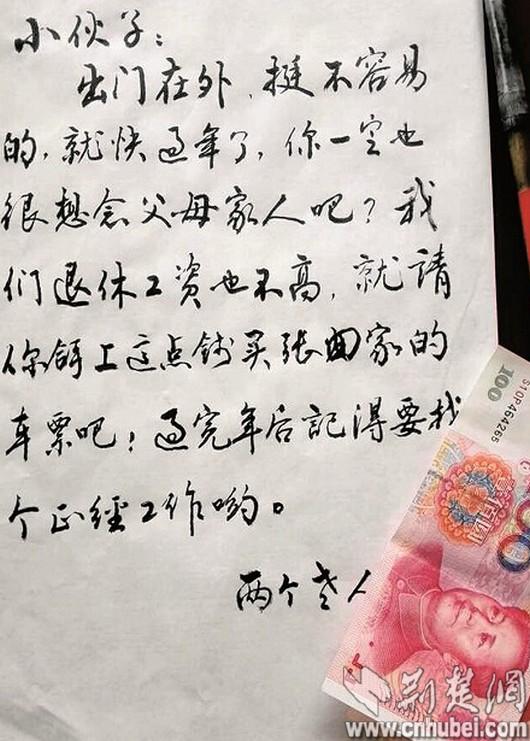 小伙子:
出门在外，挺不容易
的，就快过年了，你一定也
很想念父母家人吧？我
们退休工资也不高，就請
你餌上这点钱买张回家的
车票吧！过完年后記得要找
个正經工作哟。
两个老人
100
S10P464265
荆楚网
www.cnhubei.com